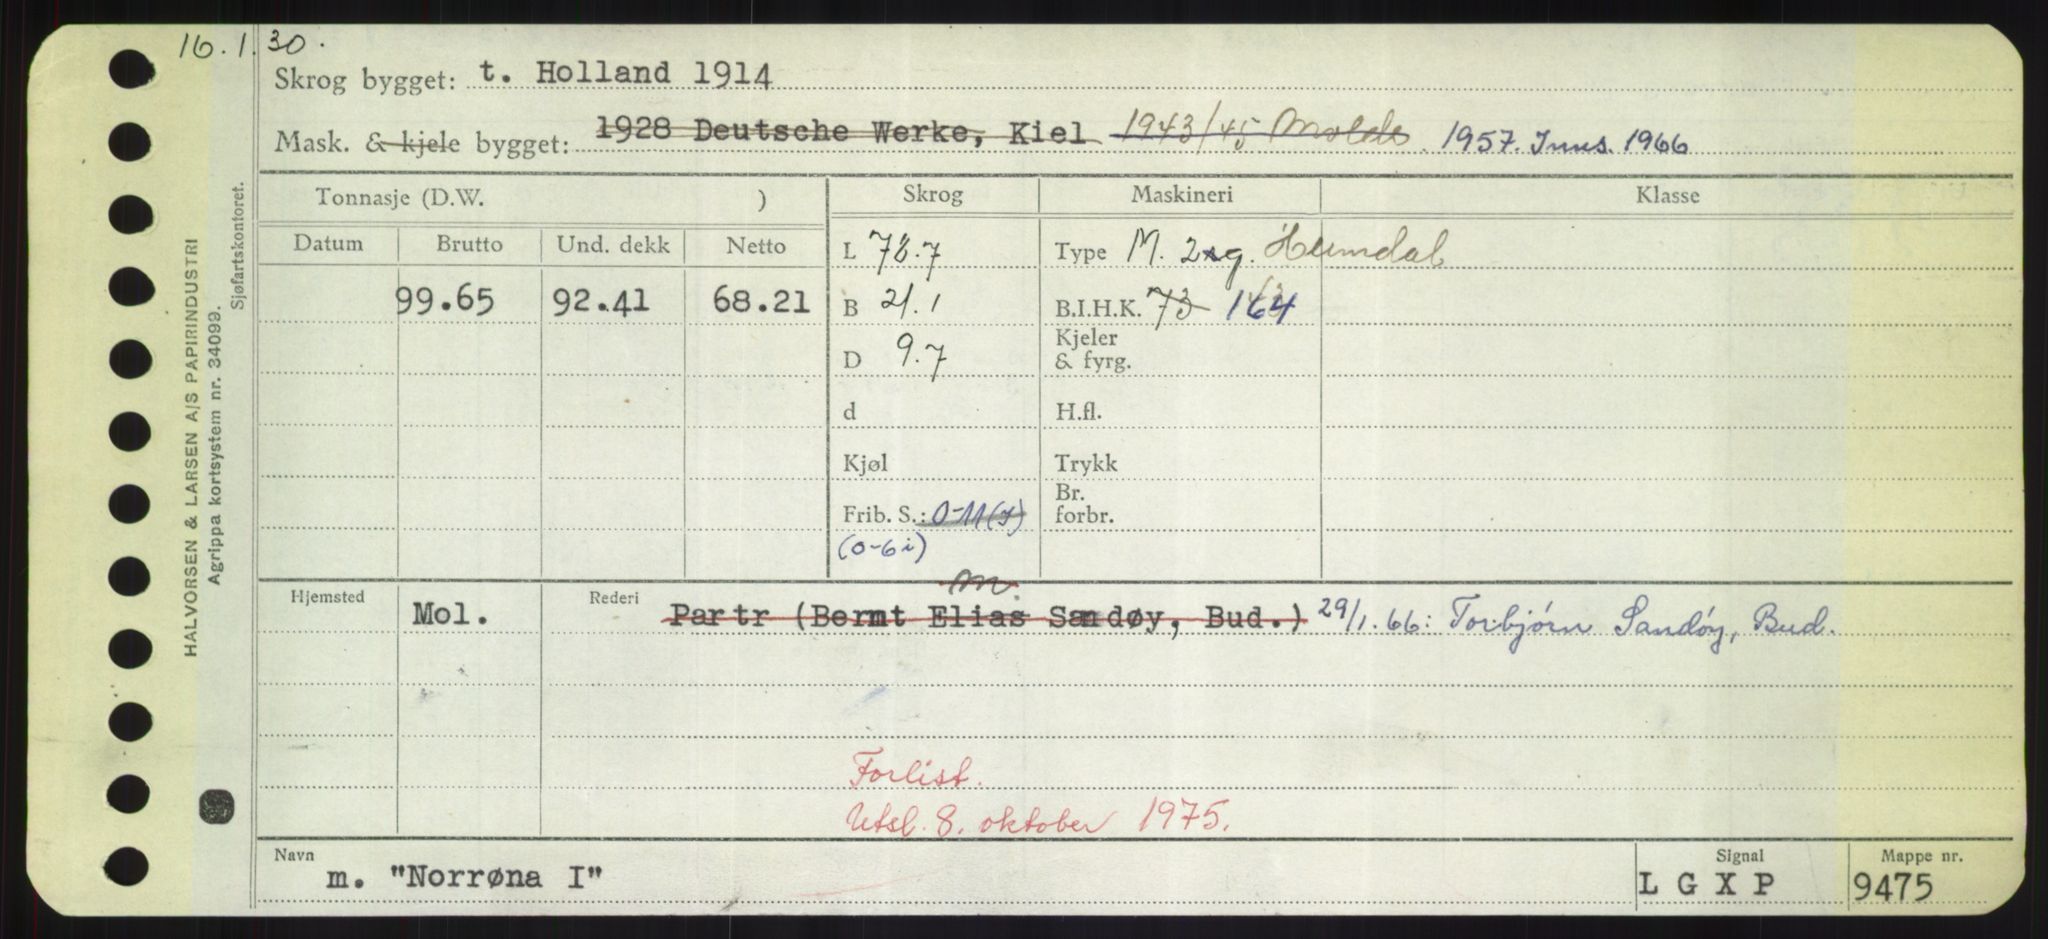 16.1.30.
Skrog bygget: t. Holland 1914
Mask. & kjele bygget: 1928 Deutsche Werke, Kiel 1943/45 Molde 1957. Inns. 1966
Tonnasje (D.W. ) Skrog Maskineri Klasse
Datum Brutto Und. dekk Netto L 78.7 Type M. 2sg. Heimdal
99.65 92.41 68.21 B 21.1 B.I.H.K. 73 164
D 9.7 Kjeler & fyrg.
d H.fl.
Kjøl Trykk
Frib. S.: 0-11(I) Br. forbr.
(0-6i)
m.
Hjemsted Mol. Rederi Partr (Bernt Elias Sandøy, Bud.) 29/1.66: Torbjørn Sandøy, Bud.
Forlist.
Utsl. 8. oktober 1975.
Navn m. "Norrøna I" Signal L G X P Mappe nr. 9475
HALVORSEN & LARSEN A/S PAPIRINDUSTRI
Agrippa kortsystem nr. 34099.
Sjøfartskontoret.